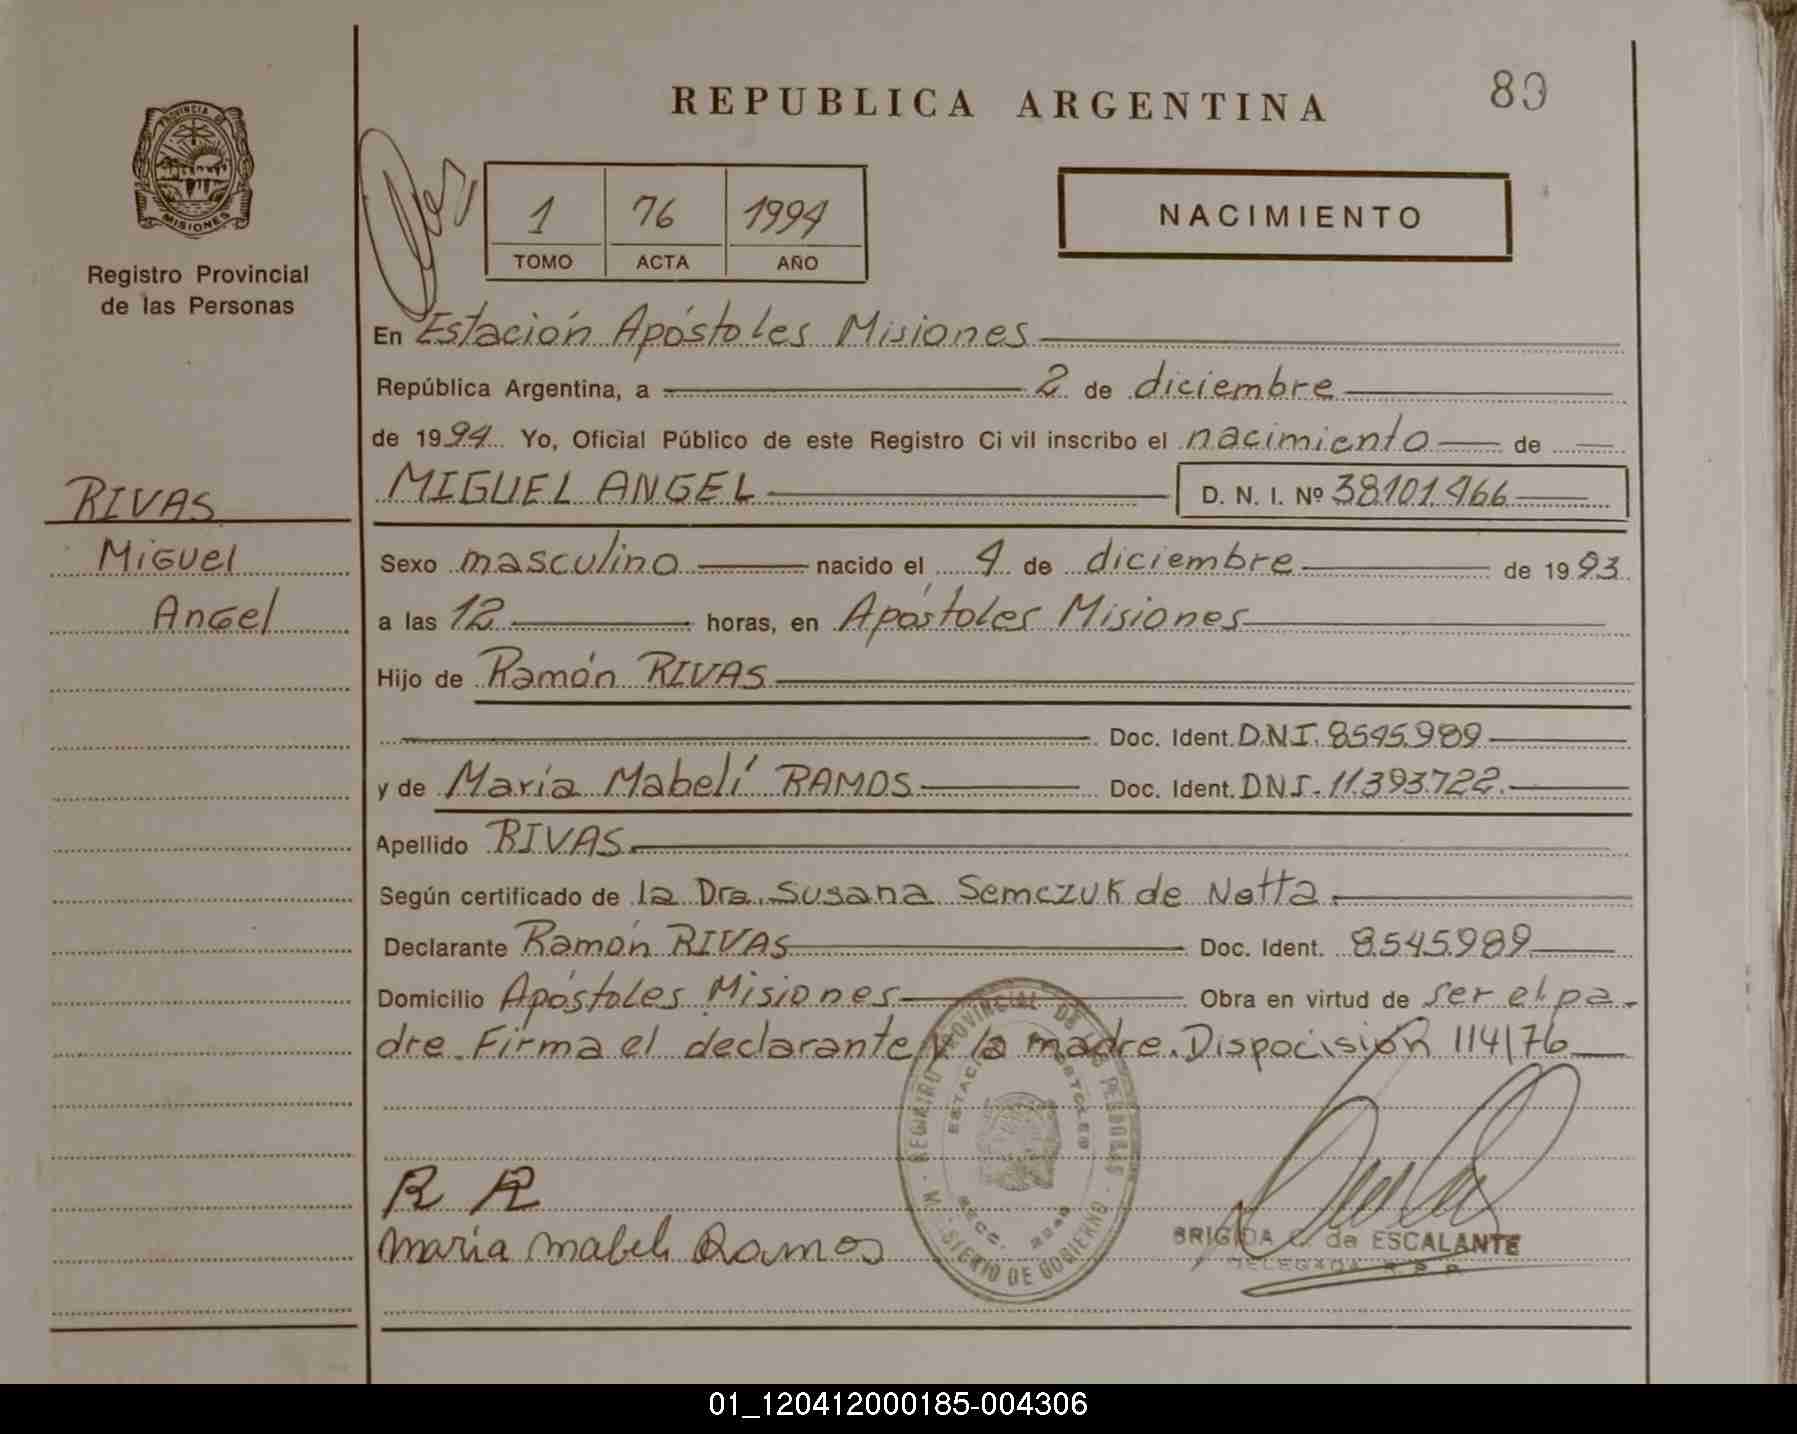 REPUBLICA ARGENTINA
80
PROVINCIA DE
MISIONES
Registro Provincial
de las Personas
1 76 1994
TOMO ACTA AÑO
NACIMIENTO
En Estación Apóstoles Misiones
República Argentina, a 2 de diciembre
de 1994 Yo, Oficial Público de este Registro Civil inscribo el nacimiento de
MIGUEL ANGEL D. N. I. Nº 38.101.466
RIVAS
Miguel
Angel
Sexo masculino nacido el 4 de diciembre de 1993
a las 12 horas, en Apóstoles Misiones
Hijo de Ramón RIVAS
Doc. Ident. D.N.I. 8.545.989
y de María Mabelí RAMOS Doc. Ident. DNI. 11.393.722
Apellido RIVAS
Según certificado de la Dra. Susana Semczuk de Netta
Declarante Ramón RIVAS Doc. Ident. 8.545.989
Domicilio Apóstoles Misiones Obra en virtud de ser el pa-
dre. Firma el declarante y la madre. Dispocisión 114/76
REGISTRO PROVINCIAL DE LAS PERSONAS
ESTACION APOSTOLES
SECC.
M. STERIO DE GOBIERNO
R R
maria mabeli Ramos
BRIGIDA C. de ESCALANTE
DELEGADA R. P. P.
01_120412000185-004306